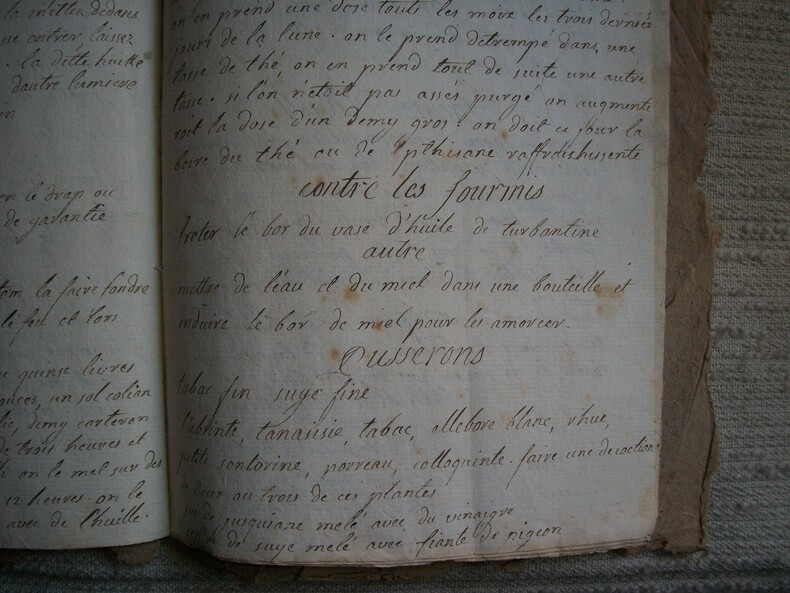 la mettez dedans
se entrer laissez
la ditte huille
dautre lumiere
en
en le drap ou
de garantie
la faire fondre
le feu et lors
quinse livres
onces, un sol colian
demy carteron
de trois heures et
on le met sur des
12 heures. on le
avec de l'huille.
on en prend une dose touts les moix les trois derniers
jours de la lune. on le prend detrempé dans une
tasse de thé, on en prend tout de suite une autre
tasse. si l'ón n'etoit pas assés purgé on augmente
roit la dose d'un demy gros. on doit ce jour la
boire du thé ou de pthisane raffroishissente
contre les fourmis
froter le bor du vase d'huile de turbantine
autre
mettre de léau et du miel dans une bouteille et
enduire le bor de miel pour les amorcer.
Pusserons
tabac fin suye fine
l'absente, tanaisie, tabac, ellebore blanc, rhue,
petite sentorine, porreau, colloquinte. faire une decoction
de deux ou trois de ces plantes
jus de jusquiane melé avec du vinaigre
de suye melé avec fiante de pigeon